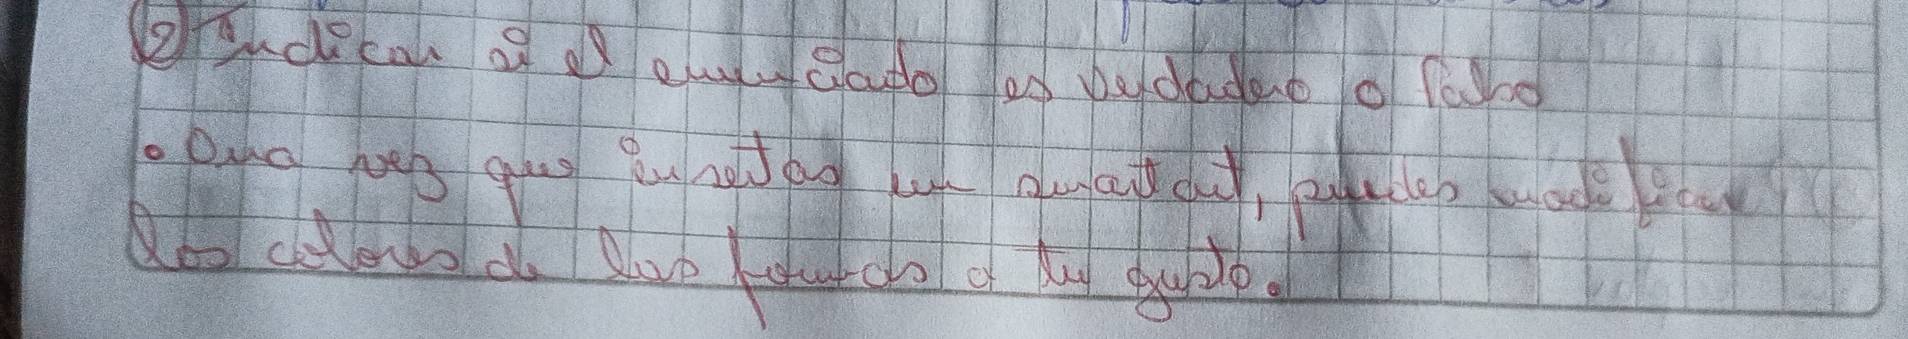 ② Indicar si el enunciado es verdadero o falso
• Una vez que insertas un smart art, puedes modificar
los colores de las formas a tu gusto.